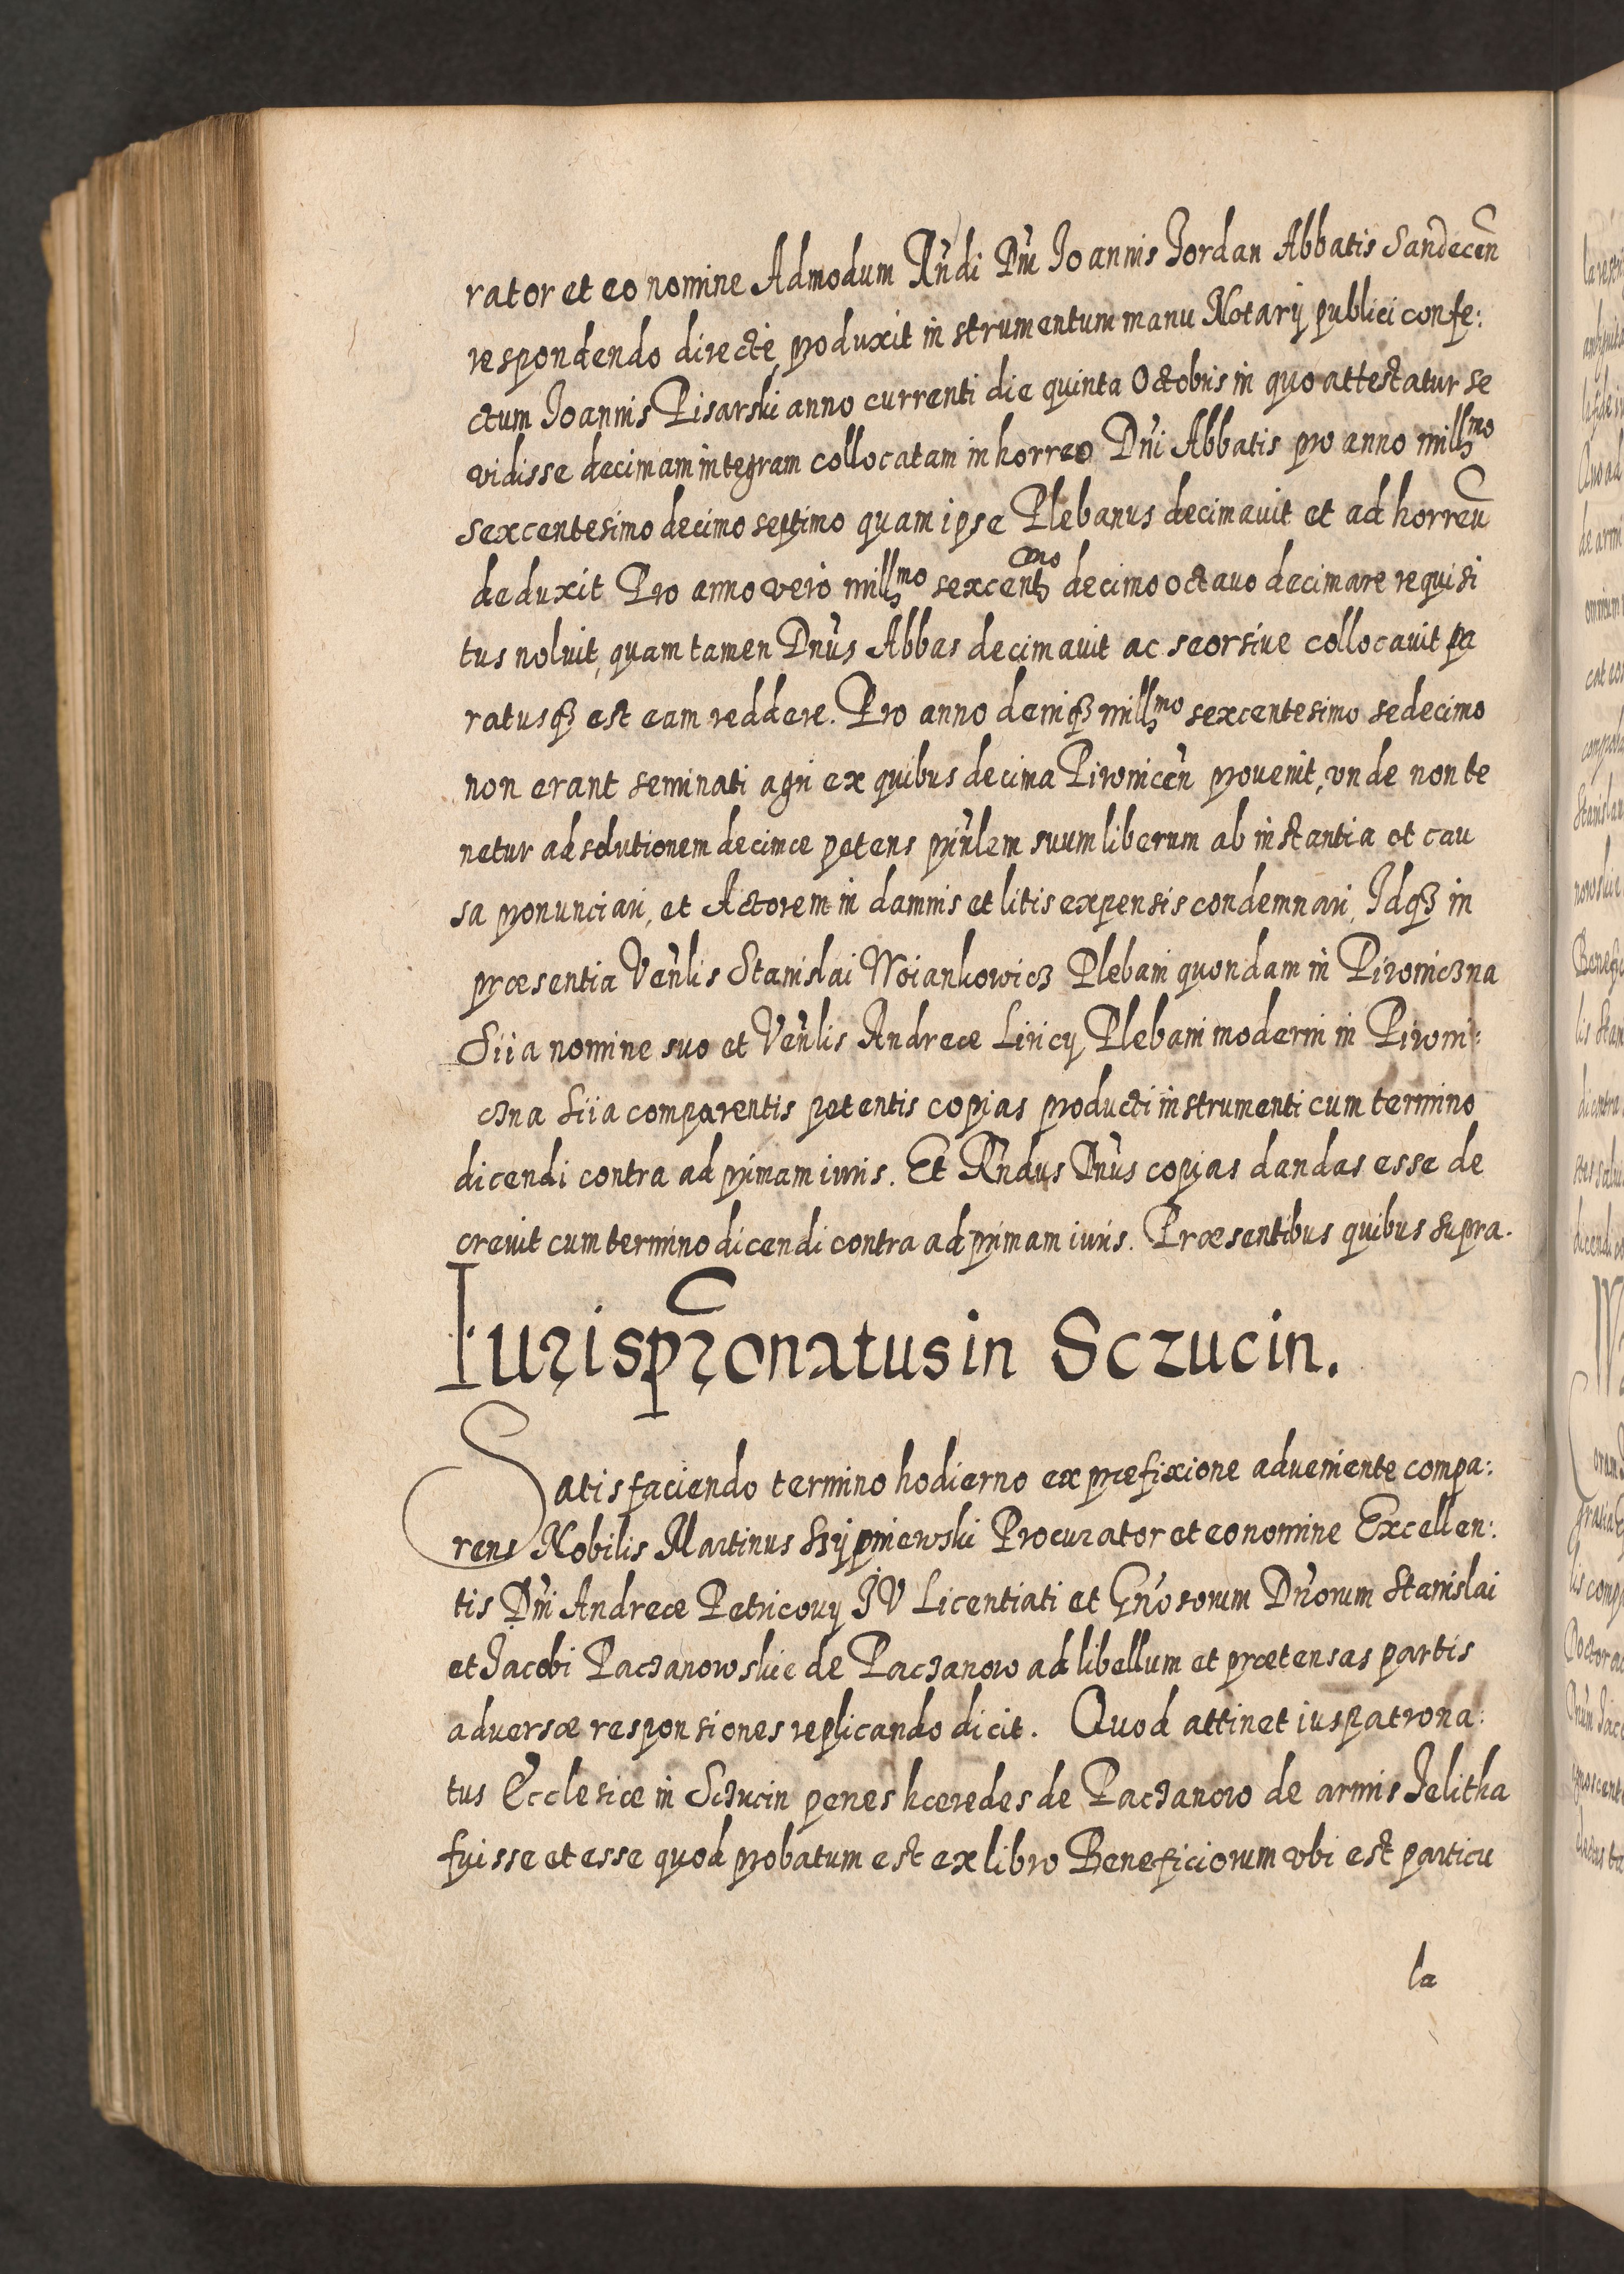 rator et eo nomine Admodum Rn̄di Dn̄i Joannis Jordan Abbatis Sandecen̄
respondendo directe produxit instrumentum manu Notarij publici confe:
ctum Joannis Pisarski anno currenti die quinta Octobris in quo attestatur se
vidisse decimam integram collocatam in horreo Dn̄i Abbatis pro anno millmo
sexcentesimo decimo septimo quam ipse Plebanus decimauit et ad horreū
deduxit Pro anno vero millmo sexcentmo decimo octauo decimare requisi
tus noluit, quam tamen Dn̄us Abbas decimauit ac seorsiue collocauit pa
ratusqꝫ est eam reddere. Pro anno deniqꝫ millmo sexcentesimo sedecimo
non erant seminati agri ex quibus decima Piwnicen̄ prouenit, vnde non te
netur ad solutionem decimæ petens prin̄lem suum liberum ab instantia et cau
sa pronunciari, et Actorem in damnis et litis expensis condemnari, Idqꝫ in
præsentia Ven̄lis Stanislai Woiankowicz Plebani quondam in Piwniczna
Siia nomine suo et Ven̄lis Andreæ Liricy Plebani moderni in Piwni:
czna Siia comparentis petentis copias producti instrumenti cum termino
dicendi contra ad primam iuris. Et Rn̄dus Dn̄us copias dandas esse de
creuit cum termino dicendi contra ad primam iuris. Præsentibus quibus supra.
Iurispr̄onatus in Sczucin.
Satisfaciendo termino hodierno ex præfixione adueniente compa:
rens Nobilis Martinus Szypniewski Procurator et eo nomine Excellen:
tis Dn̄i Andreæ Petricouy IV Licentiati et Gn̄osorum Dn̄orum Stanislai
et Jacobi Paczanowskie de Paczanow ad libellum et prætensas partis
aduersæ responsiones replicando dicit. Quod attinet iuspatrona:
tus Ecclesiæ in Sczucin penes hæredes de Paczanow de armis Jelitha
fuisse et esse quod probatum est ex libro Beneficiorum vbi est particu
la